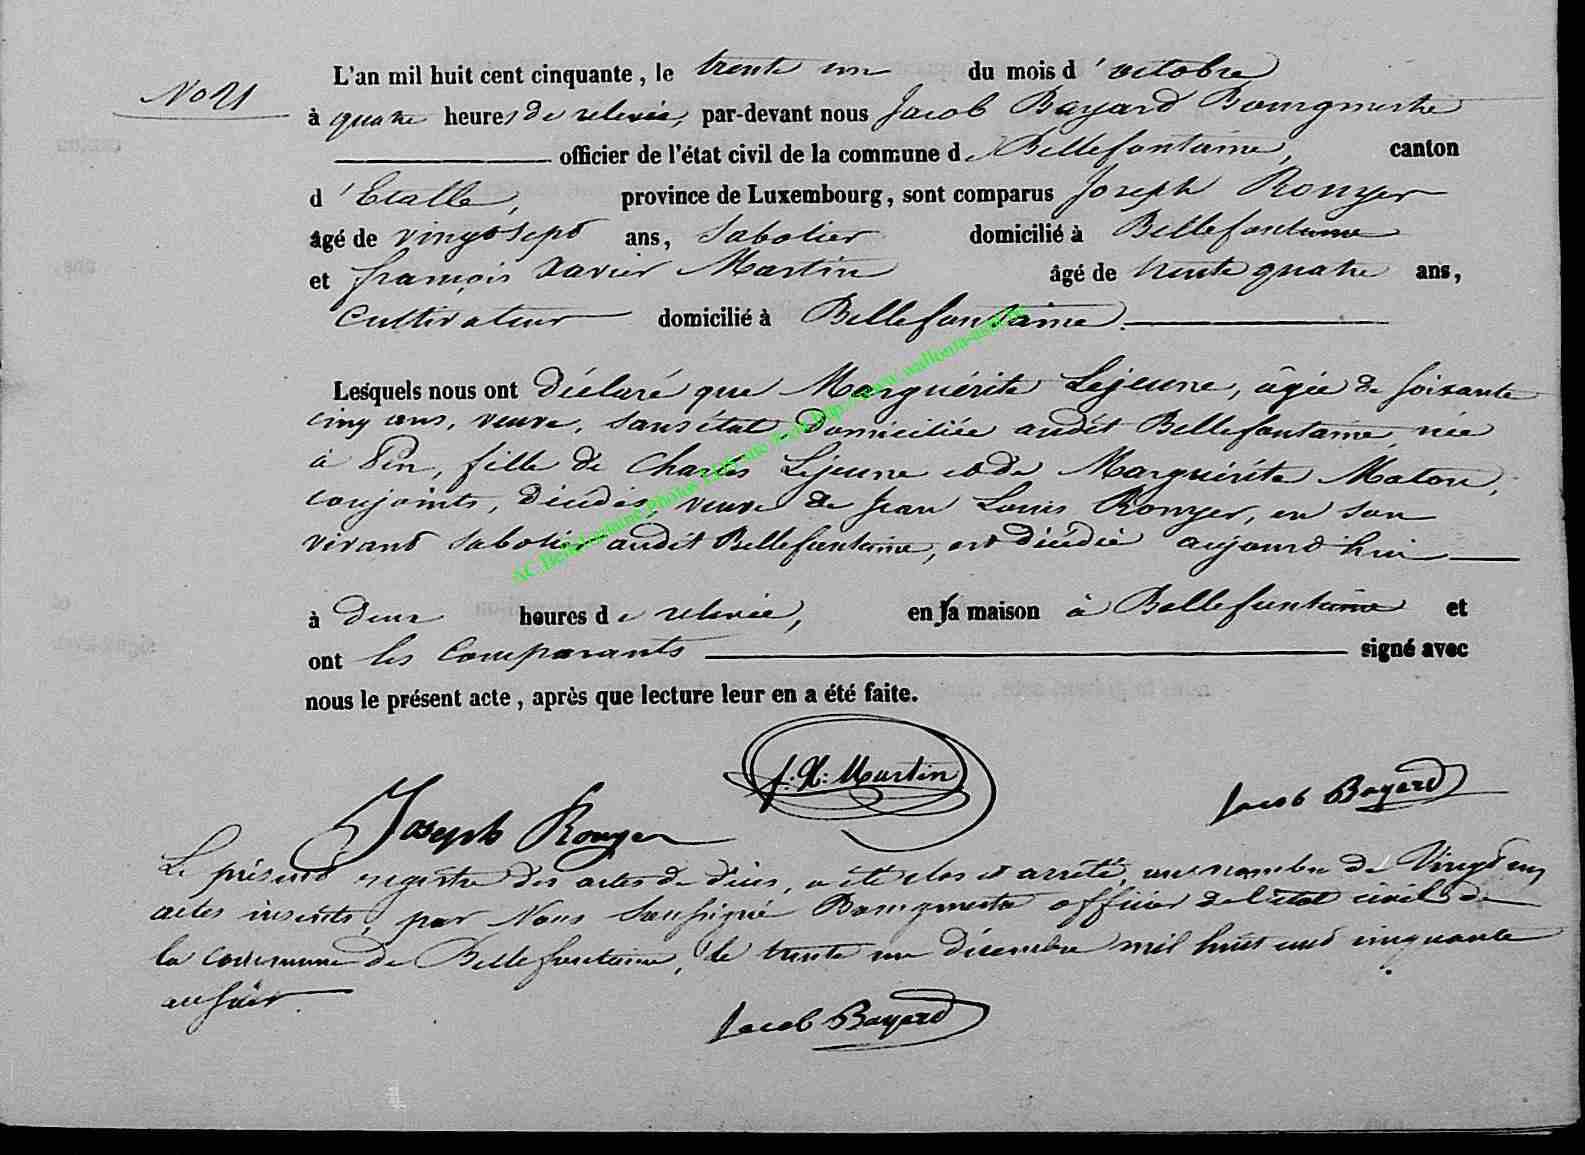 L'an mil huit cent cinquante, le trente un du mois d'octobre
No 21
à quatre heures de relevée, par-devant nous Jacob Bayard Bourgmestre
officier de l'état civil de la commune de Bellefontaine, canton
d'Etalle, province de Luxembourg, sont comparus Joseph Rouyer
âgé de vingt sept ans, Sabotier domicilié à Bellefontaine
et françois Xavier Martin âgé de trente quatre ans,
Cultivateur domicilié à Bellefontaine.
Lesquels nous ont déclaré que Marguérite Lejeune, âgée de soixante
cinq ans, veuve, sans état domiciliée audit Bellefontaine, née
à Pin, fille de Charles Lejeune et de Marguérite Maton,
conjoints, décédés, veuve de Jean Louis Rouyer, en son
vivant sabotier audit Bellefontaine, est décédée aujourd'hui
à deux heures de relevée, en sa maison à Bellefontaine et
ont les comparants signé avec
nous le présent acte, après que lecture leur en a été faite.
f: X: Martin
Jacob Bayard
Joseph Rouyer
Le présent registre des actes de décès, a été clos et arrêté, au nombre de Vingt un
actes inscrits, par Nous Soussigné Bourgmestre officier de l'état civil de
la commune de Bellefontaine, le trente un décembre mil huit cent cinquante
au soir
Jacob Bayard